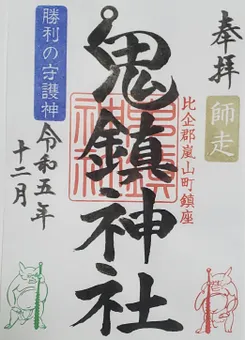 奉拝
師走
比企郡嵐山町鎮座
鬼鎮神社
勝利の守護神
令和五年
十二月